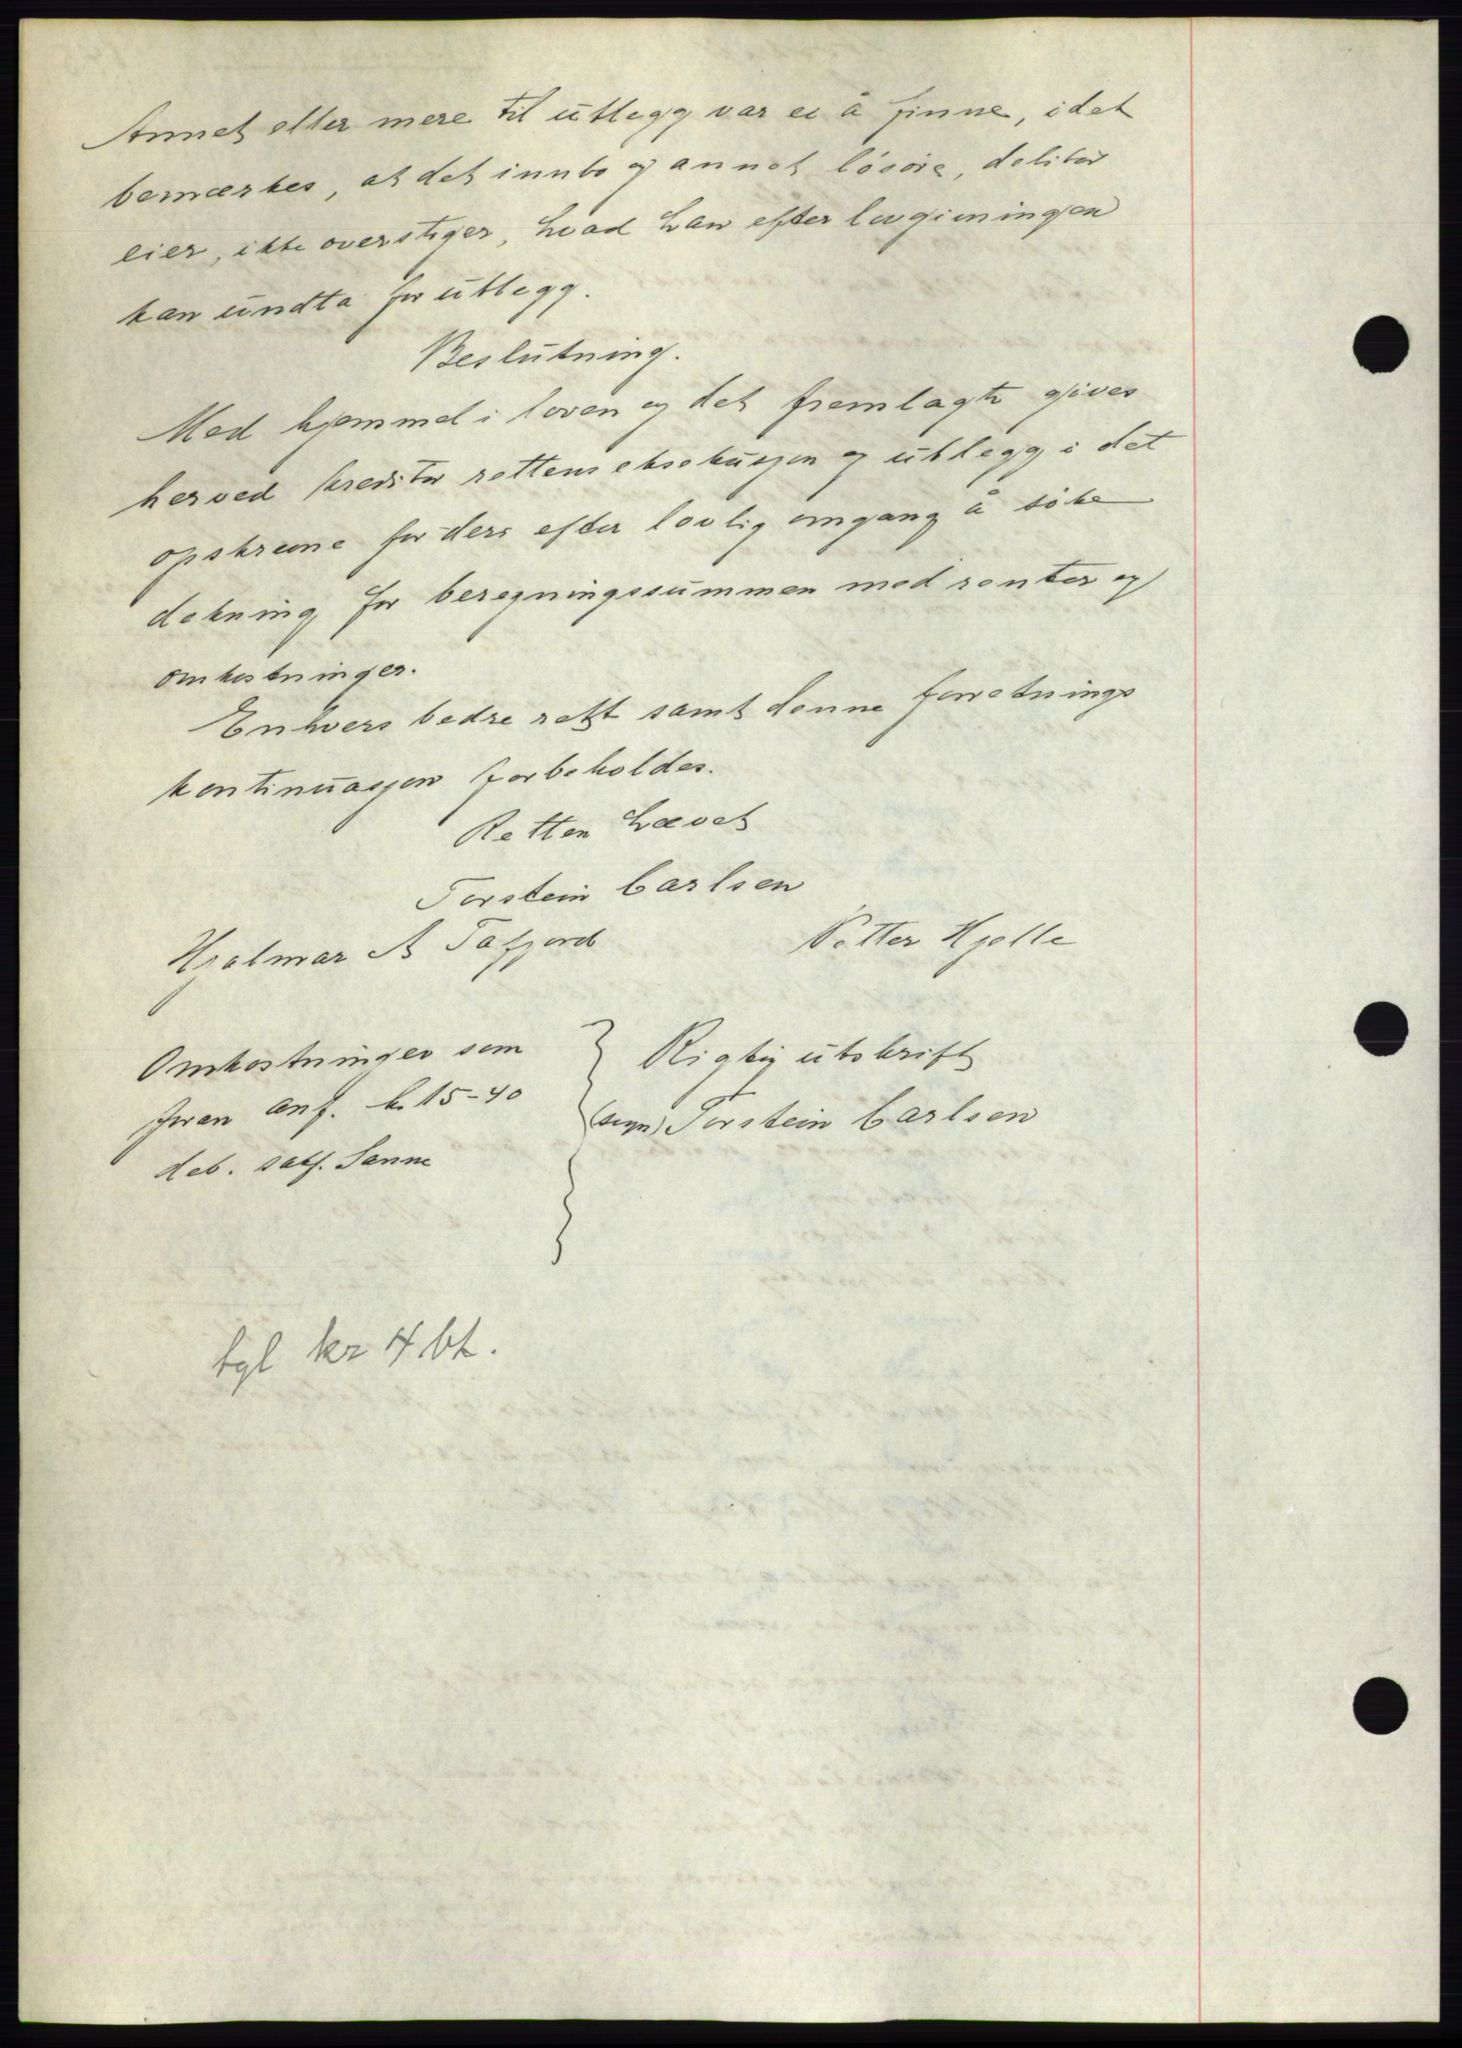 Annet eller mere til utlegg var ei å finne, idet
bemærkes, at det innbo og annet løsøre, debitor
eier, ikke overstiger, hvad han efter lovgivningen
kan undta for utlegg.
Beslutning.
Med hjemmel i loven og det fremlagte gives
herved kreditor rettens eksekusjon og utlegg i det
opskrevne for deri efter lovlig omgang å søke
dekning for beregningssummen med renter og
omkostninger.
Enhvers bedre rett samt denne forretnings
kontinuasjon forbeholdes.
Retten hævet
Torstein Carlsen
Hjalmar A Tafjord Petter Hjelle
Omkostninger som
foran anf. kr. 15-40
deb. satf. Sanne
Rigtig utskrift
(sign) Torstein Carlsen
tgl kr 4 bt.